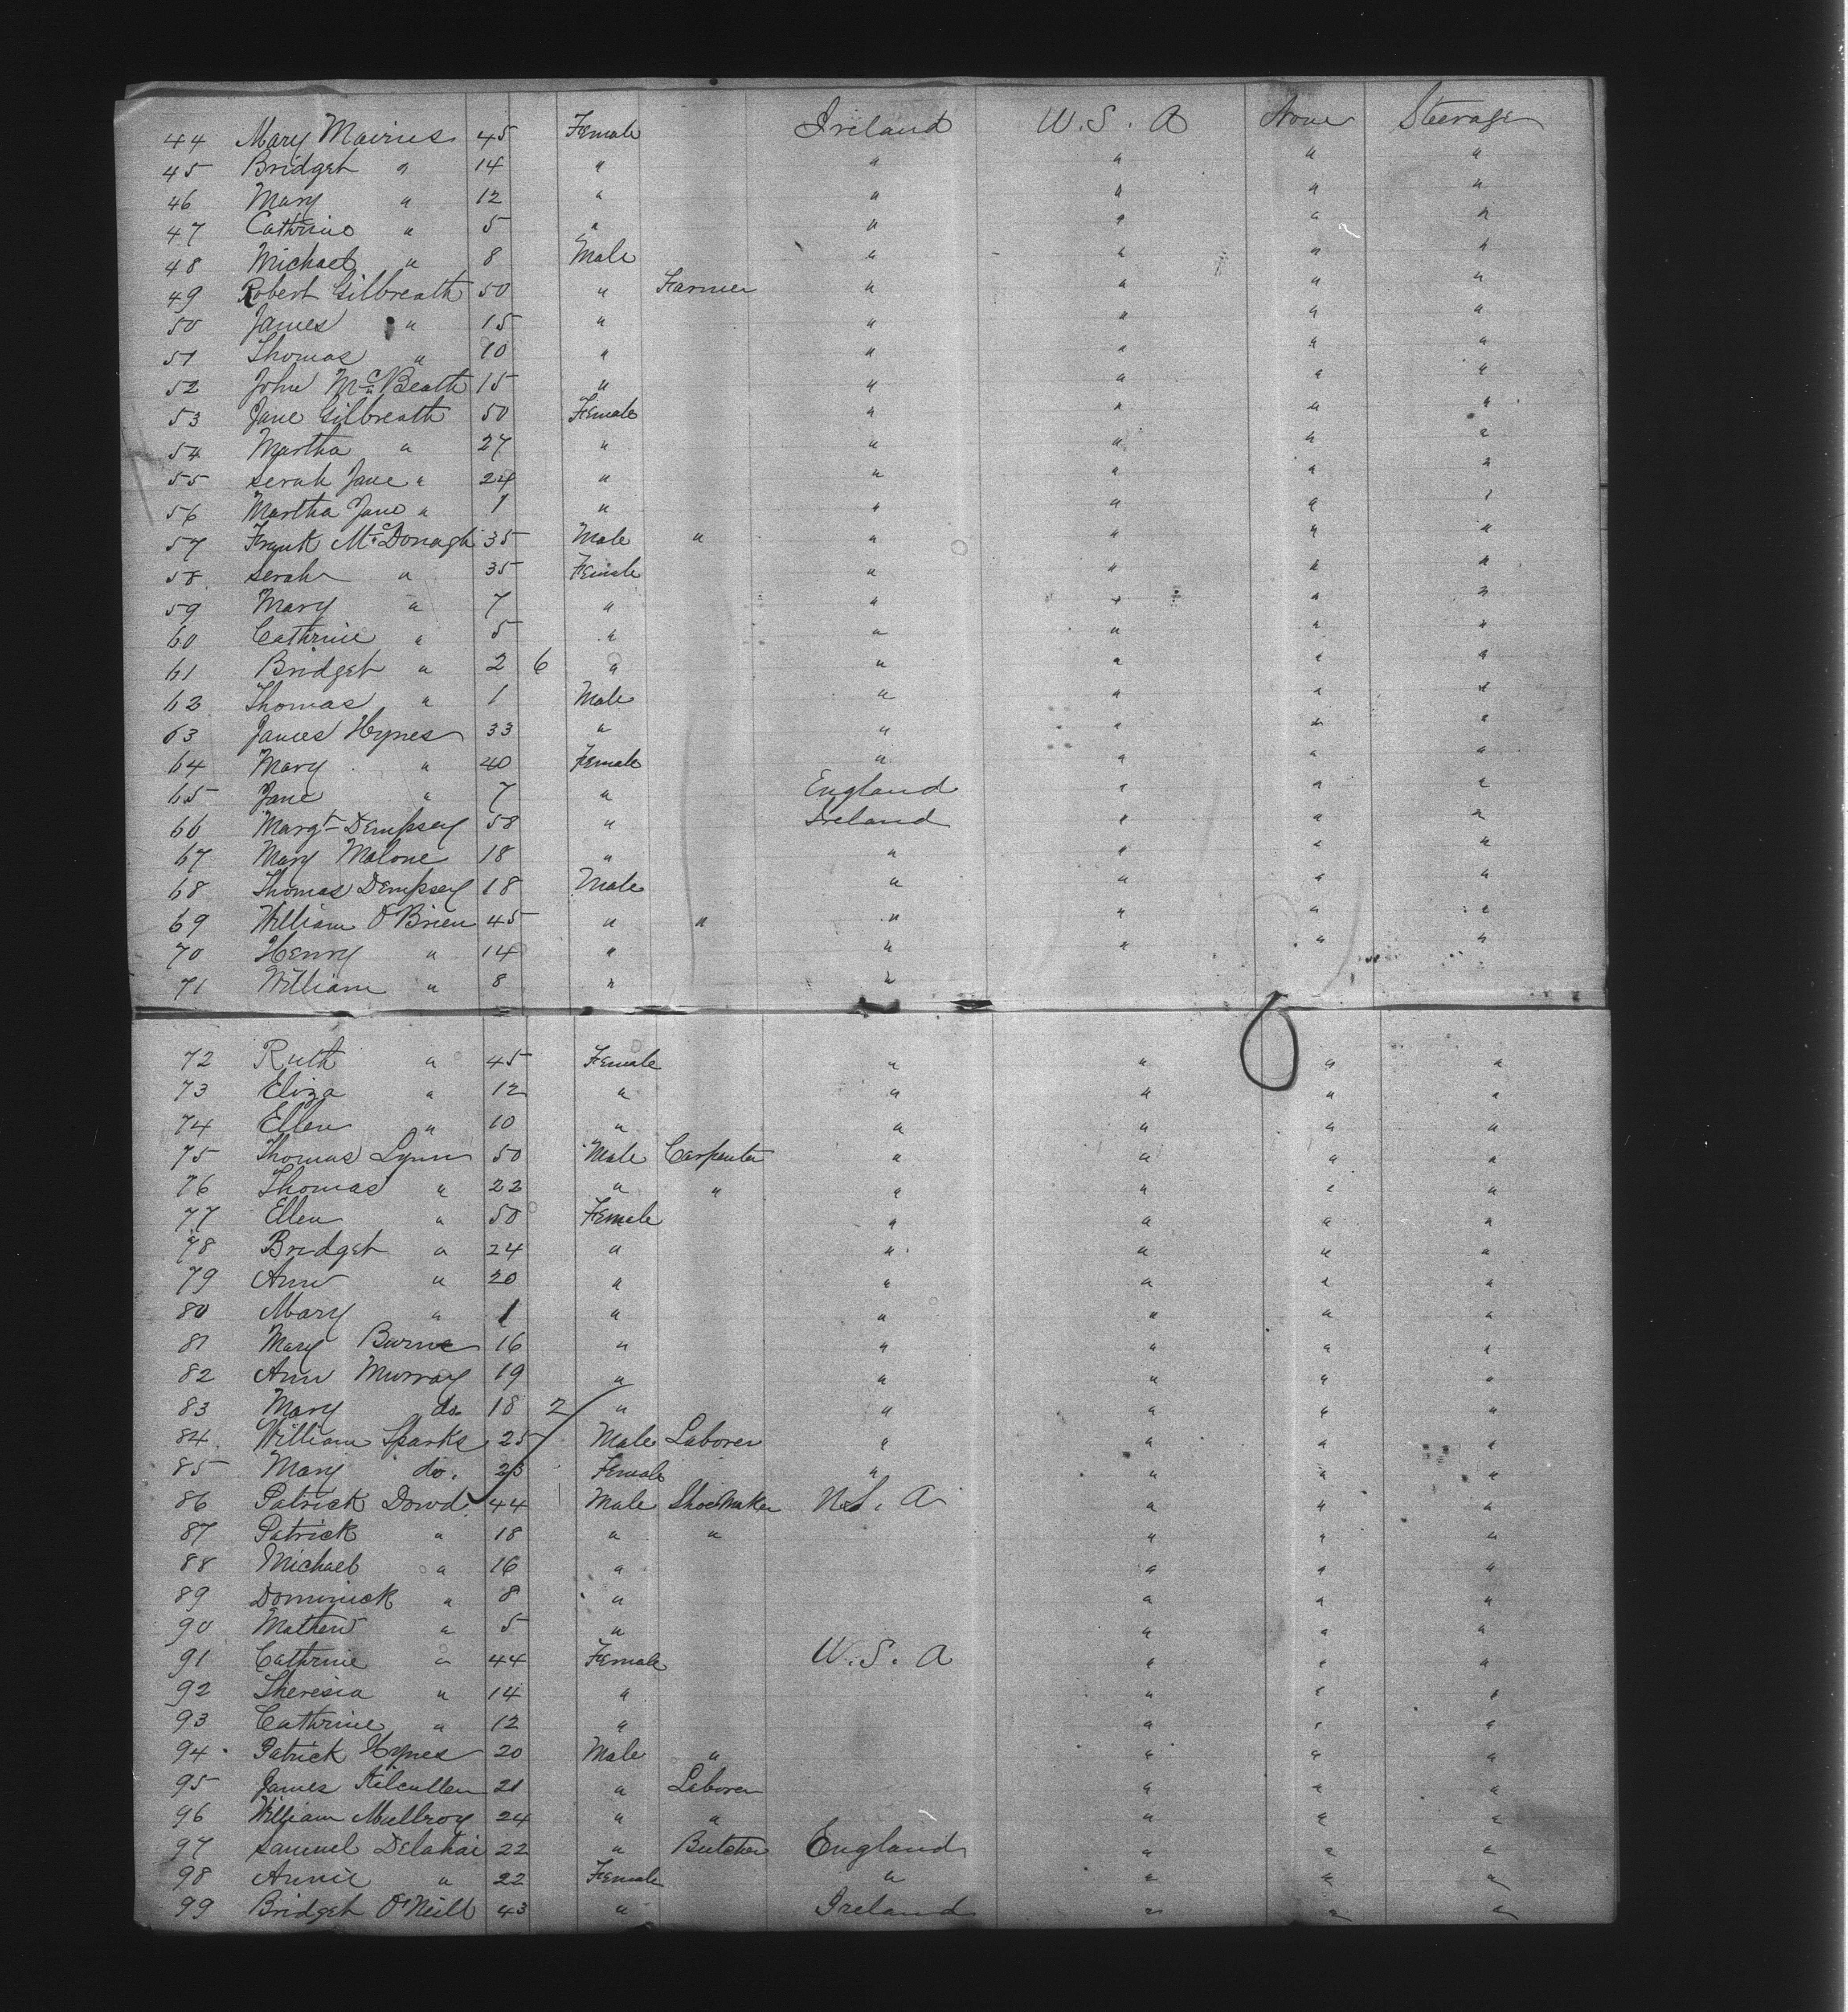 44 Mary Mairus 45 Female Ireland U.S.A None Steerage
45 Bridget " 14 " " " " "
46 Mary " 12 " " " " "
47 Cathrine " 5 " " " " "
48 Michael " 8 Male " " " "
49 Robert Gilbreath 50 " Farmer " " " "
50 James " 15 " " " " "
51 Thomas " 10 " " " " "
52 John McBeath 15 " " " " "
53 Jane Gilbreath 50 Female " " " "
54 Martha " 27 " " " " "
55 Serah Jane " 24 " " " " "
56 Martha Jane " 1 " " " " "
57 Frank McDonagh 35 Male " " " " "
58 Serah " 35 Female " " " "
59 Mary " 7 " " " " "
60 Cathrine " 5 " " " " "
61 Bridget " 2 6 " " " " "
62 Thomas " 1 Male " " " "
63 James Hynes 33 " " " " "
64 Mary " 40 Female " " " "
65 Jane " 7 " England " " "
66 Margt Dempsey 58 " Ireland " " "
67 Mary Malone 18 " " " " "
68 Thomas Dempsey 18 Male " " " "
69 William O'Brien 45 " " " " " "
70 Henry " 14 " " " " "
71 William " 8 " "
72 Ruth " 45 Female " " " "
73 Eliza " 12 " " " " "
74 Ellen " 10 " " " " "
75 Thomas Lynn 50 Male Carpenter " " " "
76 Thomas " 22 " " " " " "
77 Ellen " 50 Female " " " "
78 Bridget " 24 " " " " "
79 Ann " 20 " " " " "
80 Mary " 1 " " " " "
81 Mary Burne 16 " " " " "
82 Ann Murray 19 " " " " "
83 Mary do. 18 2 " " " " "
84 William Sparks 25 Male Laborer " " " "
85 Mary do. 23 Female " " " "
86 Patrick Dowd 44 Male Shoemaker U.S.A " " "
87 Patrick " 18 " " " " "
88 Michael " 16 " " " "
89 Dominick " 8 " " " "
90 Mathew " 5 " " " "
91 Cathrine " 44 Female U.S.A " " "
92 Theresia " 14 " " " "
93 Cathrine " 12 " " " "
94 Patrick Hynes 20 Male " " " "
95 James Kilcullen 21 " Laborer " " "
96 William Mullroy 24 " " " " "
97 Samuel Delahai 22 " Butcher England " " "
98 Annie " 22 Female " " " "
99 Bridget O'Neill 43 " Ireland " " "